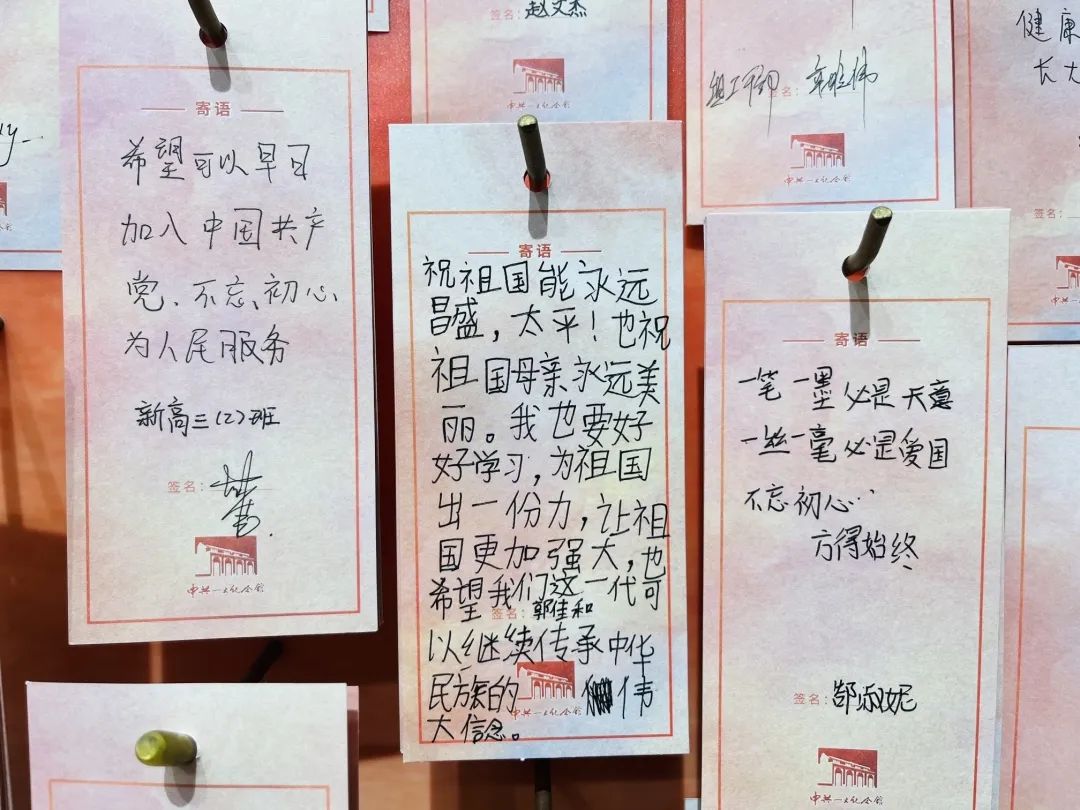 寄语
希望可以早日
加入中国共产
党、不忘、初心、
为人民服务
新高三(2)班
签名:
中共一大纪念馆
签名:赵文杰
中共一大纪念馆
寄语
祝祖国能永远
昌盛,太平!也祝
祖国母亲永远美
丽。我也要好
好学习,为祖国
出一份力,让祖
国更加强大,也
希望我们这一代可
签名:郭佳和
以继续传承中华
民族的伟
大信念。
中共一大纪念馆
签名:
中共一大纪念馆
寄语
一笔一墨必是天意
一丝一毫必是爱国
不忘初心…
方得始终
签名:
中共一大纪念馆
健康
长大
签名: